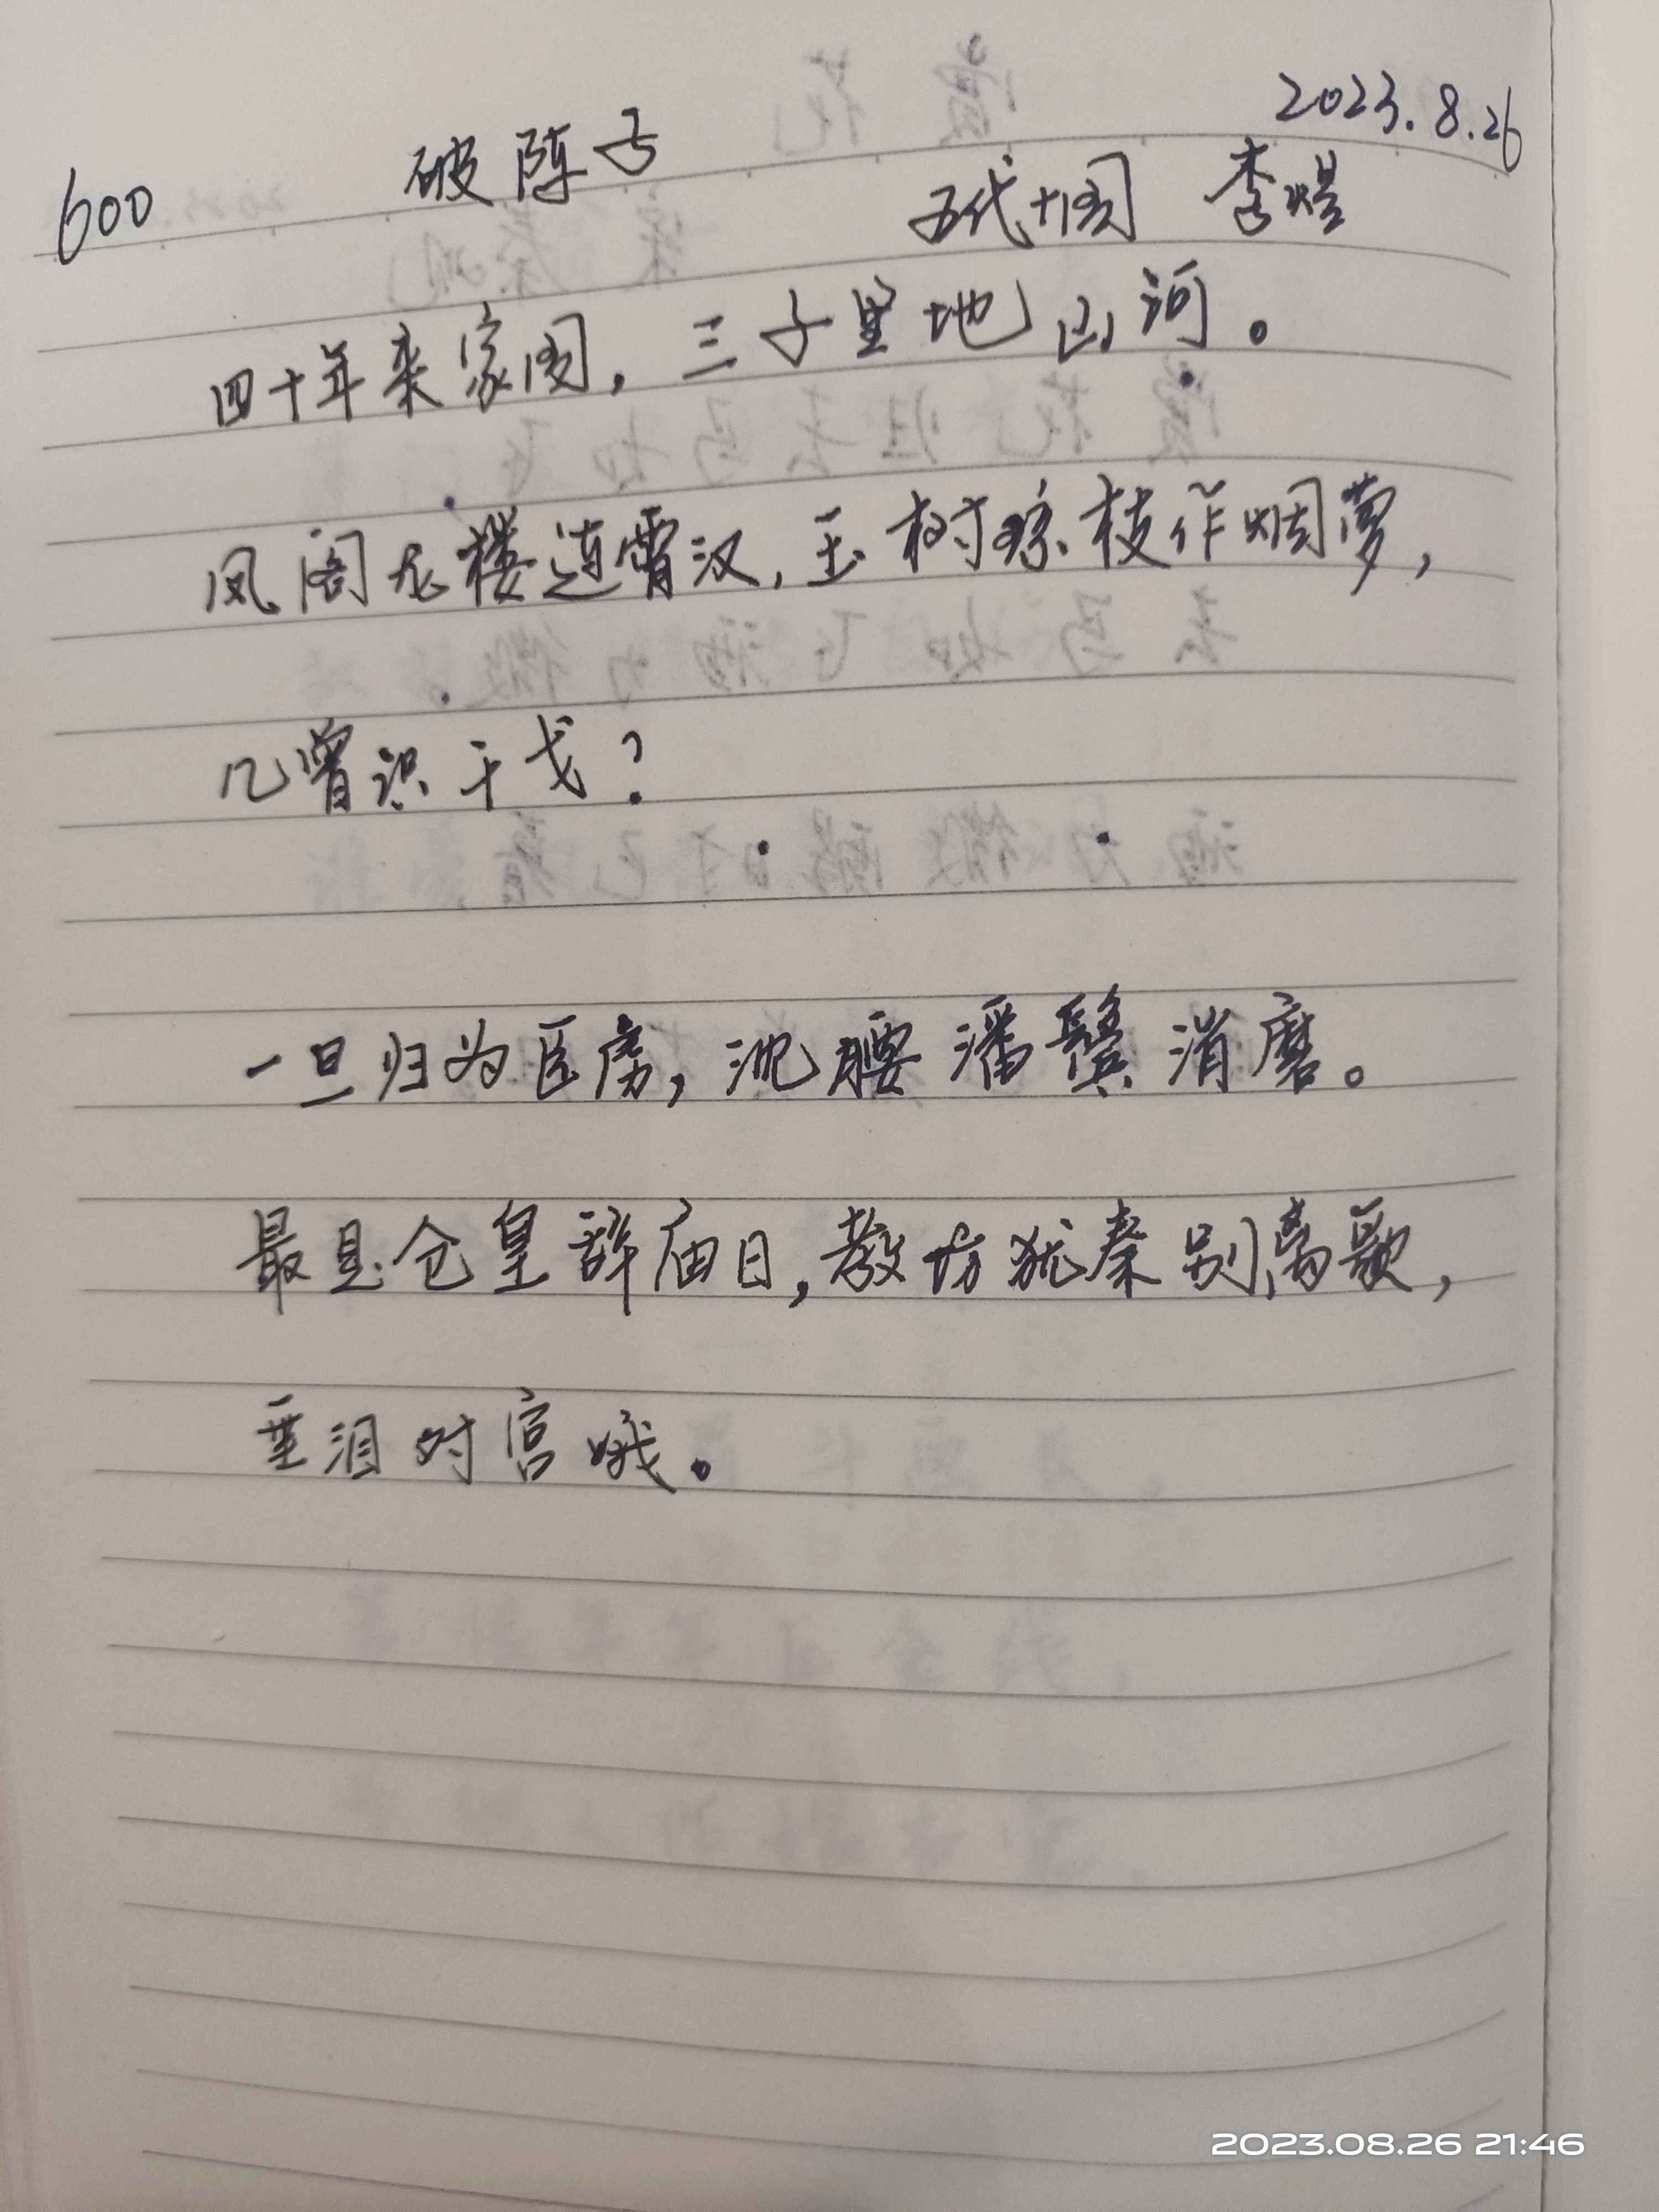 2023.8.26
600 破阵子
五代十国 李煜
四十年来家国，三千里地山河。
凤阁龙楼连霄汉，玉树琼枝作烟萝，
几曾识干戈？
一旦归为臣虏，沈腰潘鬓消磨。
最是仓皇辞庙日，教坊犹奏别离歌，
垂泪对宫娥。
2023.08.26 21:46